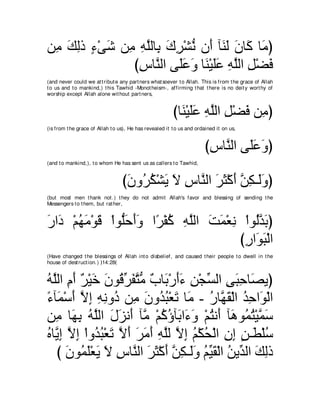 (مَا كَانَ لَنَآ أَن نُّشْرِكَ بِاللَّهِ مِن شَىْءٍ ذَلِكَ مِن
فَضْلِ اللَّهِ عَلَيْنَا وَعَلَى النَّاسِ)
(and never could we attribute any partners whatsoever to Allah. This is from the grace of Allah
to us and to mankind,) this Tawhid -Monotheism-, affirming that there is no deity worthy of
worship except Allah alone without partners,
(مِن فَضْلِ اللَّهِ عَلَيْنَا)
(is from the grace of Allah to us), He has revealed it to us and ordained it on us,
(وَعَلَى النَّاسِ)
(and to mankind,), to whom He has sent us as callers to Tawhid,
(وَلَـكِنَّ أَكْثَرَ النَّاسِ لاَ يَشْكُرُونَ)
(but most men thank not.) they do not admit Allah's favor and blessing of sending the
Messengers to them, but rather,
(بَدَّلُواْ نِعْمَتَ اللَّهِ كُفْرًا وَأَحَلُّواْ قَوْمَهُمْ دَارَ
الْبَوَارِ)
(Have changed the blessings of Allah into disbelief, and caused their people to dwell in the
house of destruction.) )14:28(
(يصَاحِبَىِ السِّجْنِ ءَأَرْبَابٌ مُّتَفَرِّقُونَ خَيْرٌ أَمِ اللَّهُ
الْوَاحِدُ الْقَهَّارُ - مَا تَعْبُدُونَ مِن دُونِهِ إِلاَّ أَسْمَآءً
سَمَّيْتُمُوهَآ أَنتُمْ وَءَابَآؤُكُمْ مَّآ أَنزَلَ اللَّهُ بِهَا مِن
سُلْطَـنٍ إِنِ الْحُكْمُ إِلاَّ للَّهِ أَمَرَ أَلاَّ تَعْبُدُواْ إِلاَّ إِيَّاهُ
ذَلِكَ الدِّينُ الْقَيِّمُ وَلَـكِنَّ أَكْثَرَ النَّاسِ لاَ يَعْلَمُونَ )